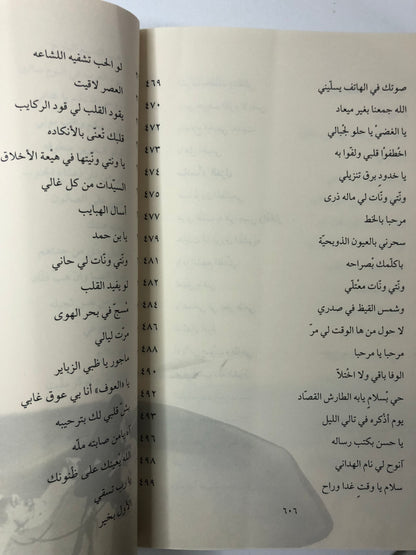 صوتك في الهاتف يسلّيني ٤٦٩
الله جمعنا بغير ميعاد ٤٧٠
يا الغضيْ يا حلو لجبالي ٤٧٢
اخطفوْا قلبي ولفّوا به ٤٧٣
يا خدود برقٍ تنزيلي ٤٧٤
ونّتي ونّات لي ماله ذرى ٤٧٥
مرحبا بالخط ٤٧٧
سحرني بالعيون الذوبحيّة ٤٧٩
باكلّمك بْصراحه ٤٨١
ونّتي ونّات معْتلّي ٤٨٢
وشمس القيظ في صدري ٤٨٤
لا حول من ها الوقت لي مرّ ٤٨٦
مرحبا يا مرحبا ٤٨٨
الوفا باقي ولا اختلاّ ٤٩٠
حي بْسلامٍ يابه الطارش القصّاد ٤٩٢
يوم أذكره في تالي الليل ٤٩٣
يا حسن بكتب رساله ٤٩٦
أنوح لي نام الهداني ٤٩٨
سلام يا وقتٍ غدا وراح ٤٩٩
٦٠٦
لو الحب تشفيه اللشاعه
العصر لاقيت
يقود القلب لي قود الركايب
قلبك تْعنّى بالأنكاده
يا ونتي ونّيتها في هيْعة الأخلاق
السيّدات من كل غالي
أسال الهبايب
يا بن حمد
ونّتي ونّات لي حاني
لو يفيد القلب
مْسجّ في بحر الهوى
مرّت ليالي
ماجور يا ظبي الزباير
يا «العوف» أنا بي عوق غابي
بشّ قلبي لك بترحيبه
آه يا من صابته ملّه
الله يعيتك على ظنونك
يا رب تسقي
الأول بخير